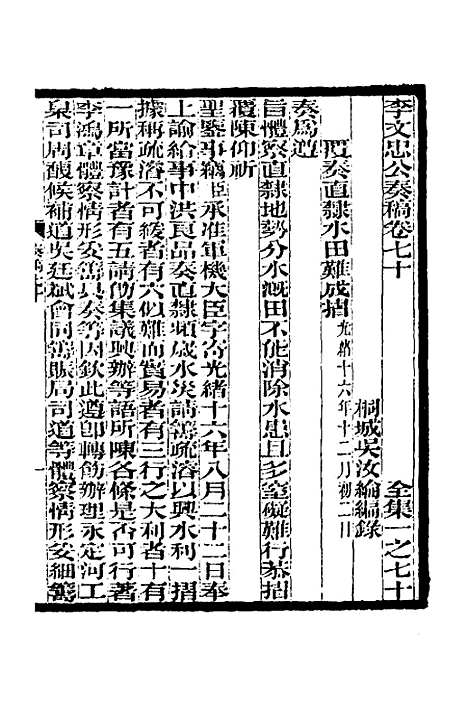 李文忠公奏稿卷七十　全集一之七十
桐城吳汝綸編錄
覆奏直隸水田難成摺 光緒十六年十二月初二日
奏為遵
旨體察直隸地勢分水溉田不能消除水患且多窒礙難行恭摺
覆陳仰祈
聖鑒事竊臣承准軍機大臣字寄光緒十六年八月二十二日奉
上諭給事中洪良品奏直隸頻歲水災請籌疏濬以興水利一摺
據稱疏濬不可緩者有六似難而實易者有三行之大利者十有
一所當豫計者有五請飭集議興辦等語所陳各條是否可行著
李鴻章體察情形妥籌具奏等因欽此遵卽轉飭辦理永定河工
臬司周馥候補道吳廷斌會同籌賑局司道等體察情形妥細籌
奏稿七十
一